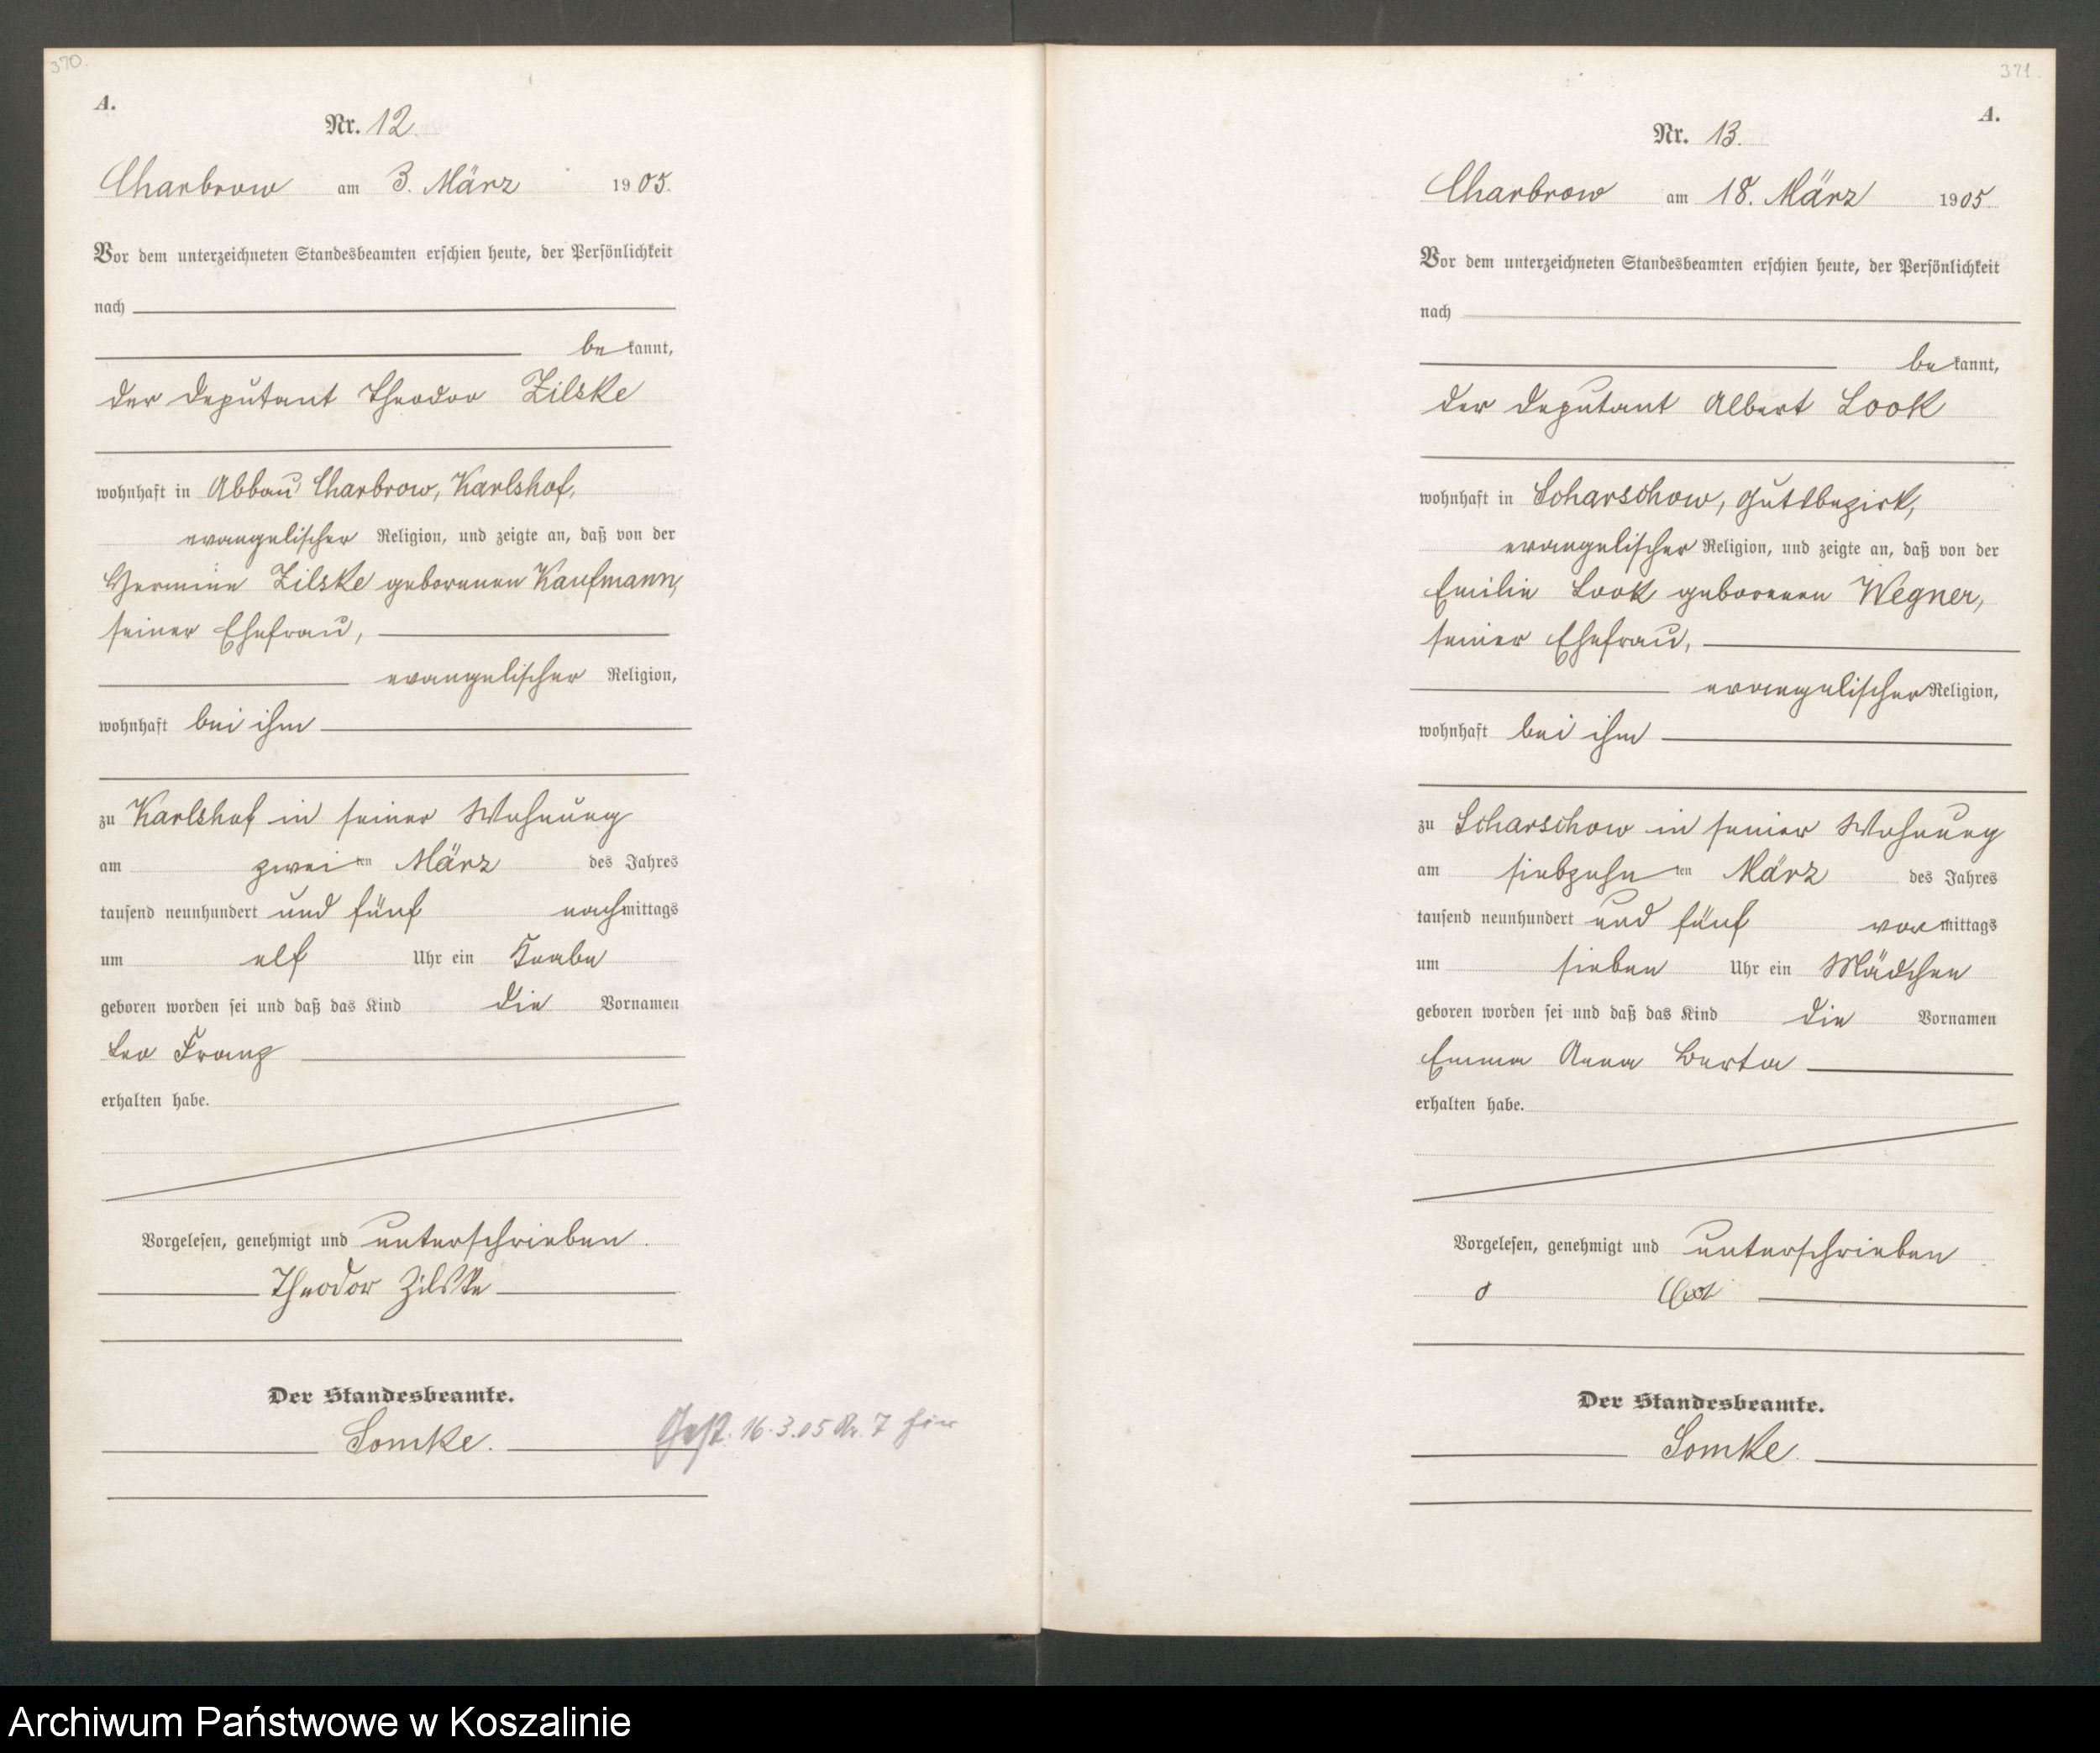 370.
A.
Nr. 12
Charbrow am 3. März 1905.
Vor dem unterzeichneten Standesbeamten erschien heute, der Persönlichkeit
nach
bekannt,
der Deputant Theodor Zilske
wohnhaft in Abbau Charbrow, Karlshof,
evangelischer Religion, und zeigte an, daß von der
Hermine Zilske geborenen Kaufmann,
seiner Ehefrau,
evangelischer Religion,
wohnhaft bei ihm
zu Karlshof in seiner Wohnung
am zweiten März des Jahres
tausend neunhundert und fünf nachmittags
um elf Uhr ein Knabe
geboren worden sei und daß das Kind die Vornamen
Leo Franz
erhalten habe.
Vorgelesen, genehmigt und unterschrieben.
Theodor Zilske
Der Standesbeamte.
Lomke.
Gest. 16.3.05 Nr. 7 hier
371.
A.
Nr. 13.
Charbrow am 18. März 1905.
Vor dem unterzeichneten Standesbeamten erschien heute, der Persönlichkeit
nach
bekannt,
der Deputant Albert Look
wohnhaft in Scharschow, Gutsbezirk,
evangelischer Religion, und zeigte an, daß von der
Emilie Look geborenen Wegner,
seiner Ehefrau,
evangelischer Religion,
wohnhaft bei ihm
zu Scharschow in seiner Wohnung
am siebzehnten März des Jahres
tausend neunhundert und fünf vormittags
um sieben Uhr ein Mädchen
geboren worden sei und daß das Kind die Vornamen
Emma Anna Berta
erhalten habe.
Vorgelesen, genehmigt und unterschrieben
Der Standesbeamte.
Lomke.
Archiwum Państwowe w Koszalinie